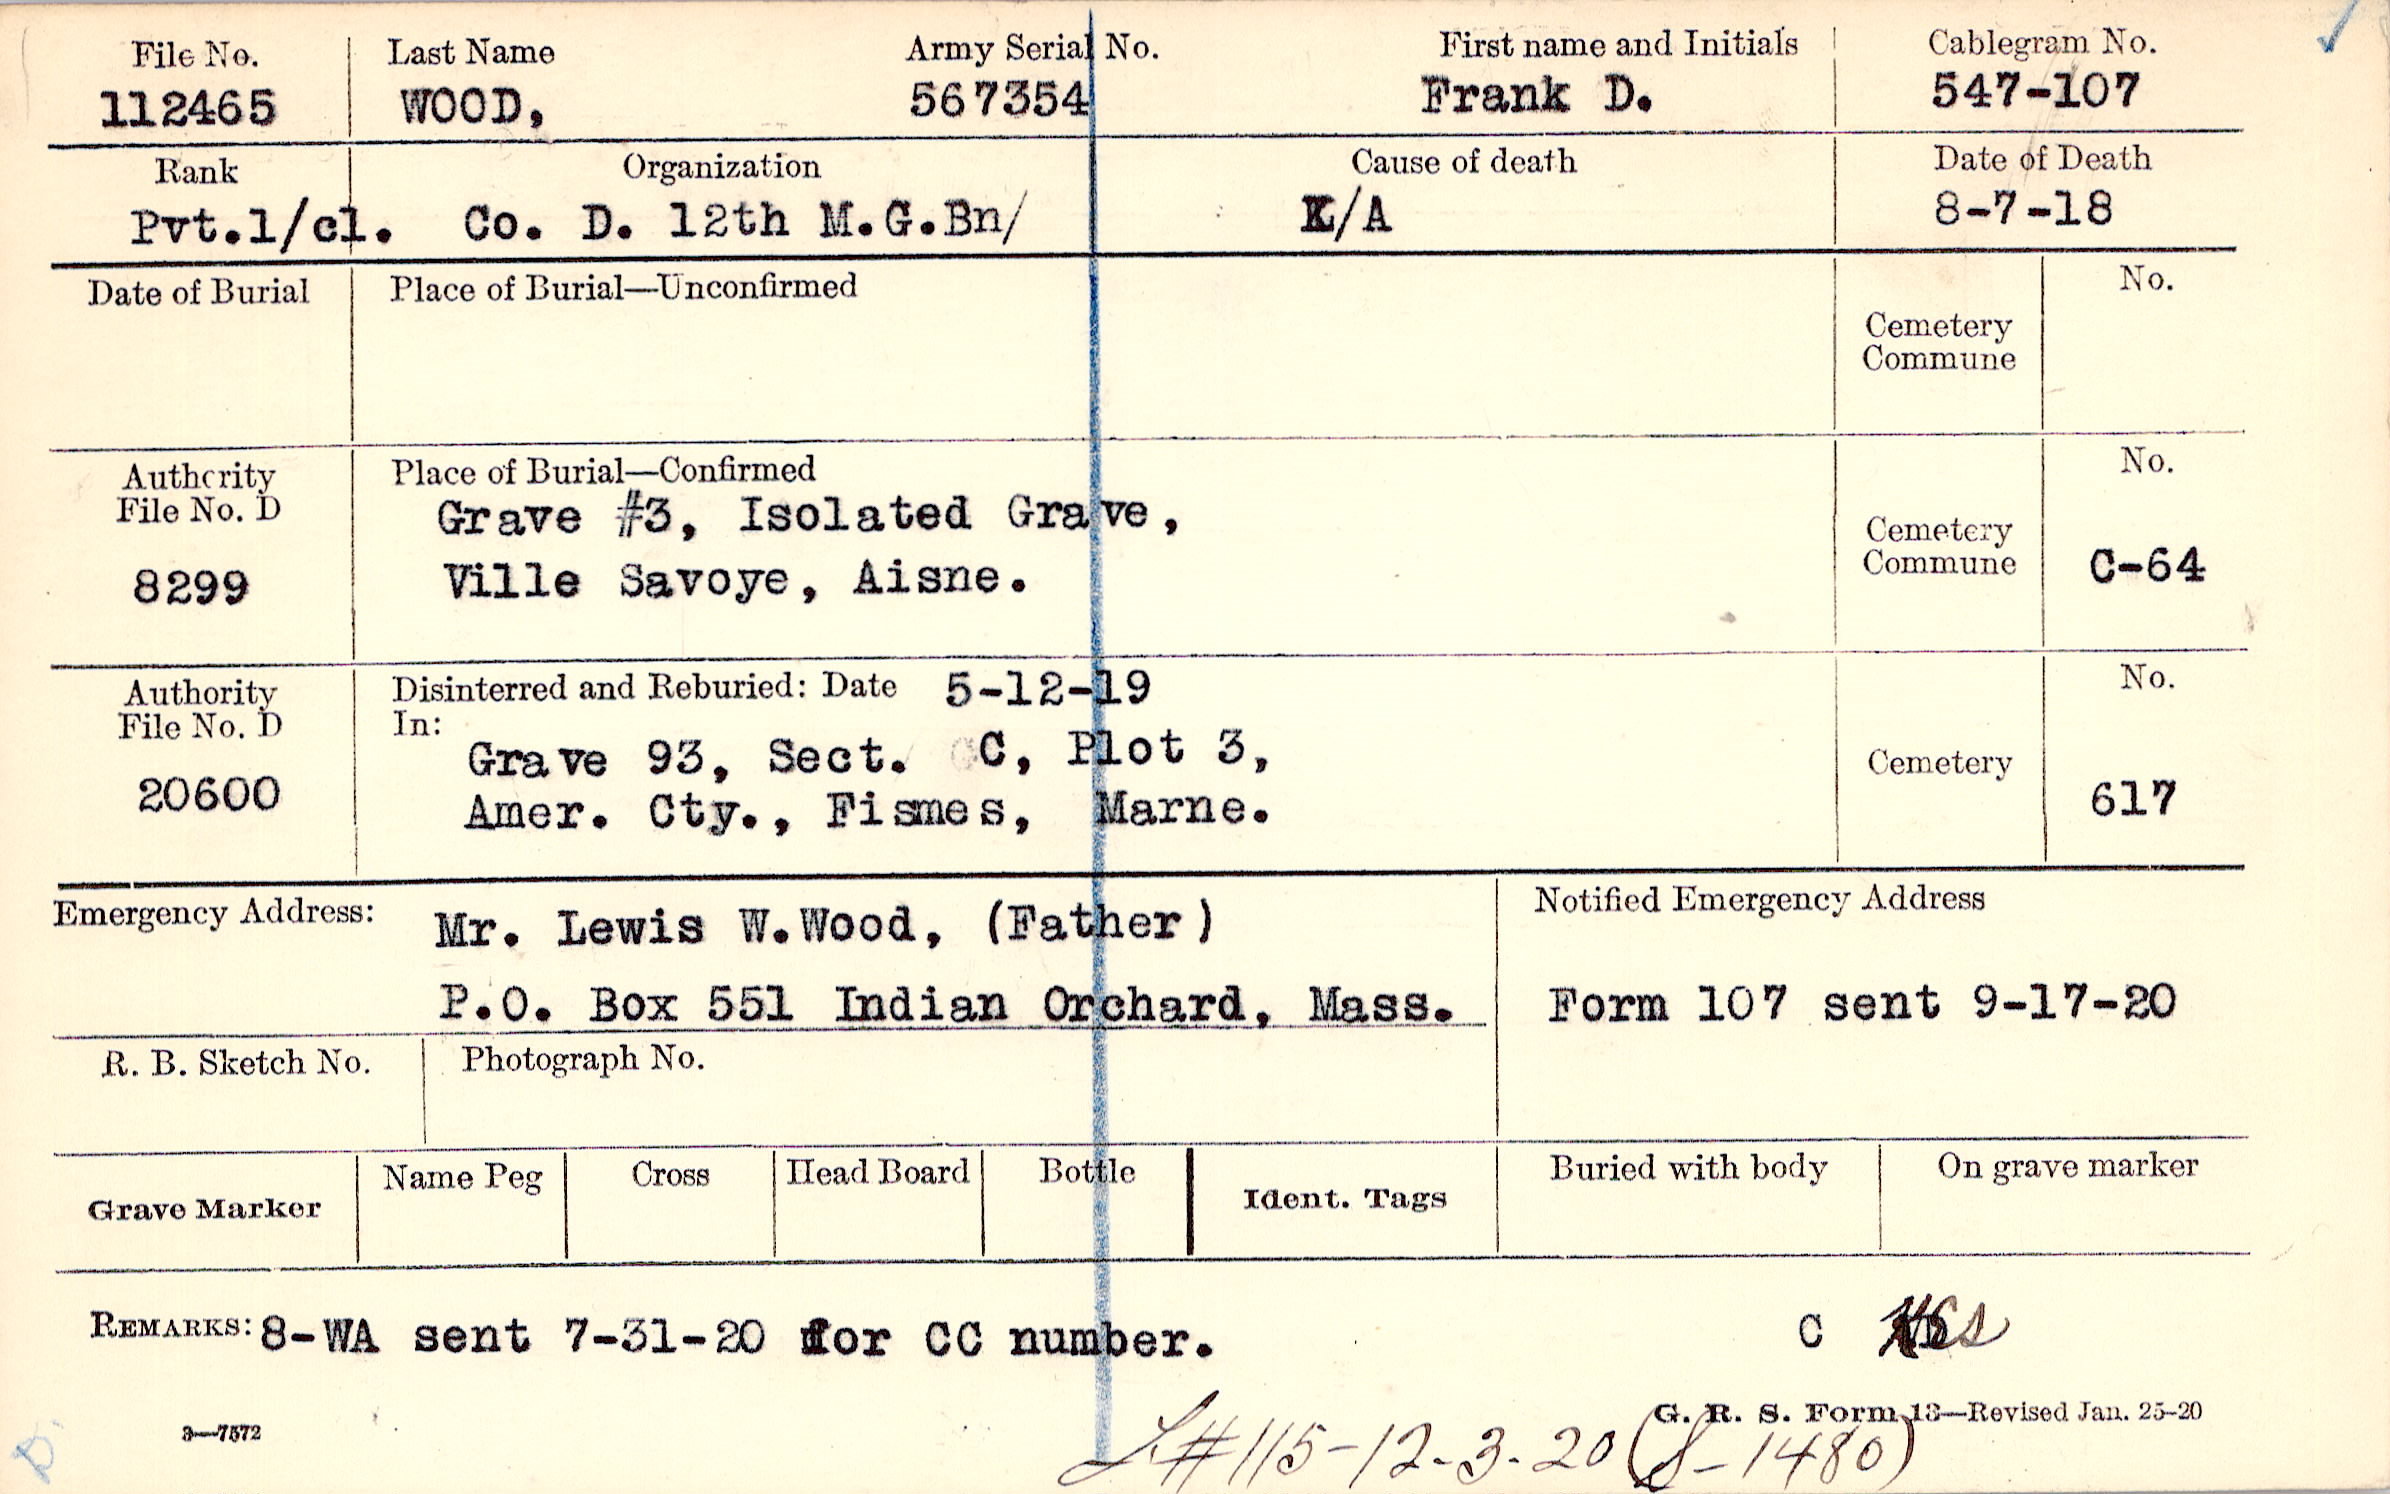 File No. Last Name Army Serial No. First name and Initials Cablegram No.
112465 WOOD, 567354 Frank D. 547-107
Rank Organization Cause of death Date of Death
Pvt.1/cl. Co. D. 12th M.G.Bn/ K/A 8-7-18
Date of Burial Place of Burial—Unconfirmed No.
Cemetery
Commune
Authority Place of Burial—Confirmed No.
File No. D Grave #3, Isolated Grave, Cemetery
8299 Ville Savoye, Aisne. Commune C-64
Authority Disinterred and Reburied: Date 5-12-19 No.
File No. D In:
Grave 93, Sect. C, Plot 3, Cemetery
20600 Amer. Cty., Fismes, Marne. 617
Emergency Address: Mr. Lewis W.Wood, (Father) Notified Emergency Address
P.O. Box 551 Indian Orchard, Mass. Form 107 sent 9-17-20
R. B. Sketch No. Photograph No.
Grave Marker Name Peg Cross Head Board Bottle Ident. Tags Buried with body On grave marker
REMARKS: 8-WA sent 7-31-20 for CC number. C
G. R. S. Form 13—Revised Jan. 25-20
3—7572
L#115-12-3-20 (S-1480)
D